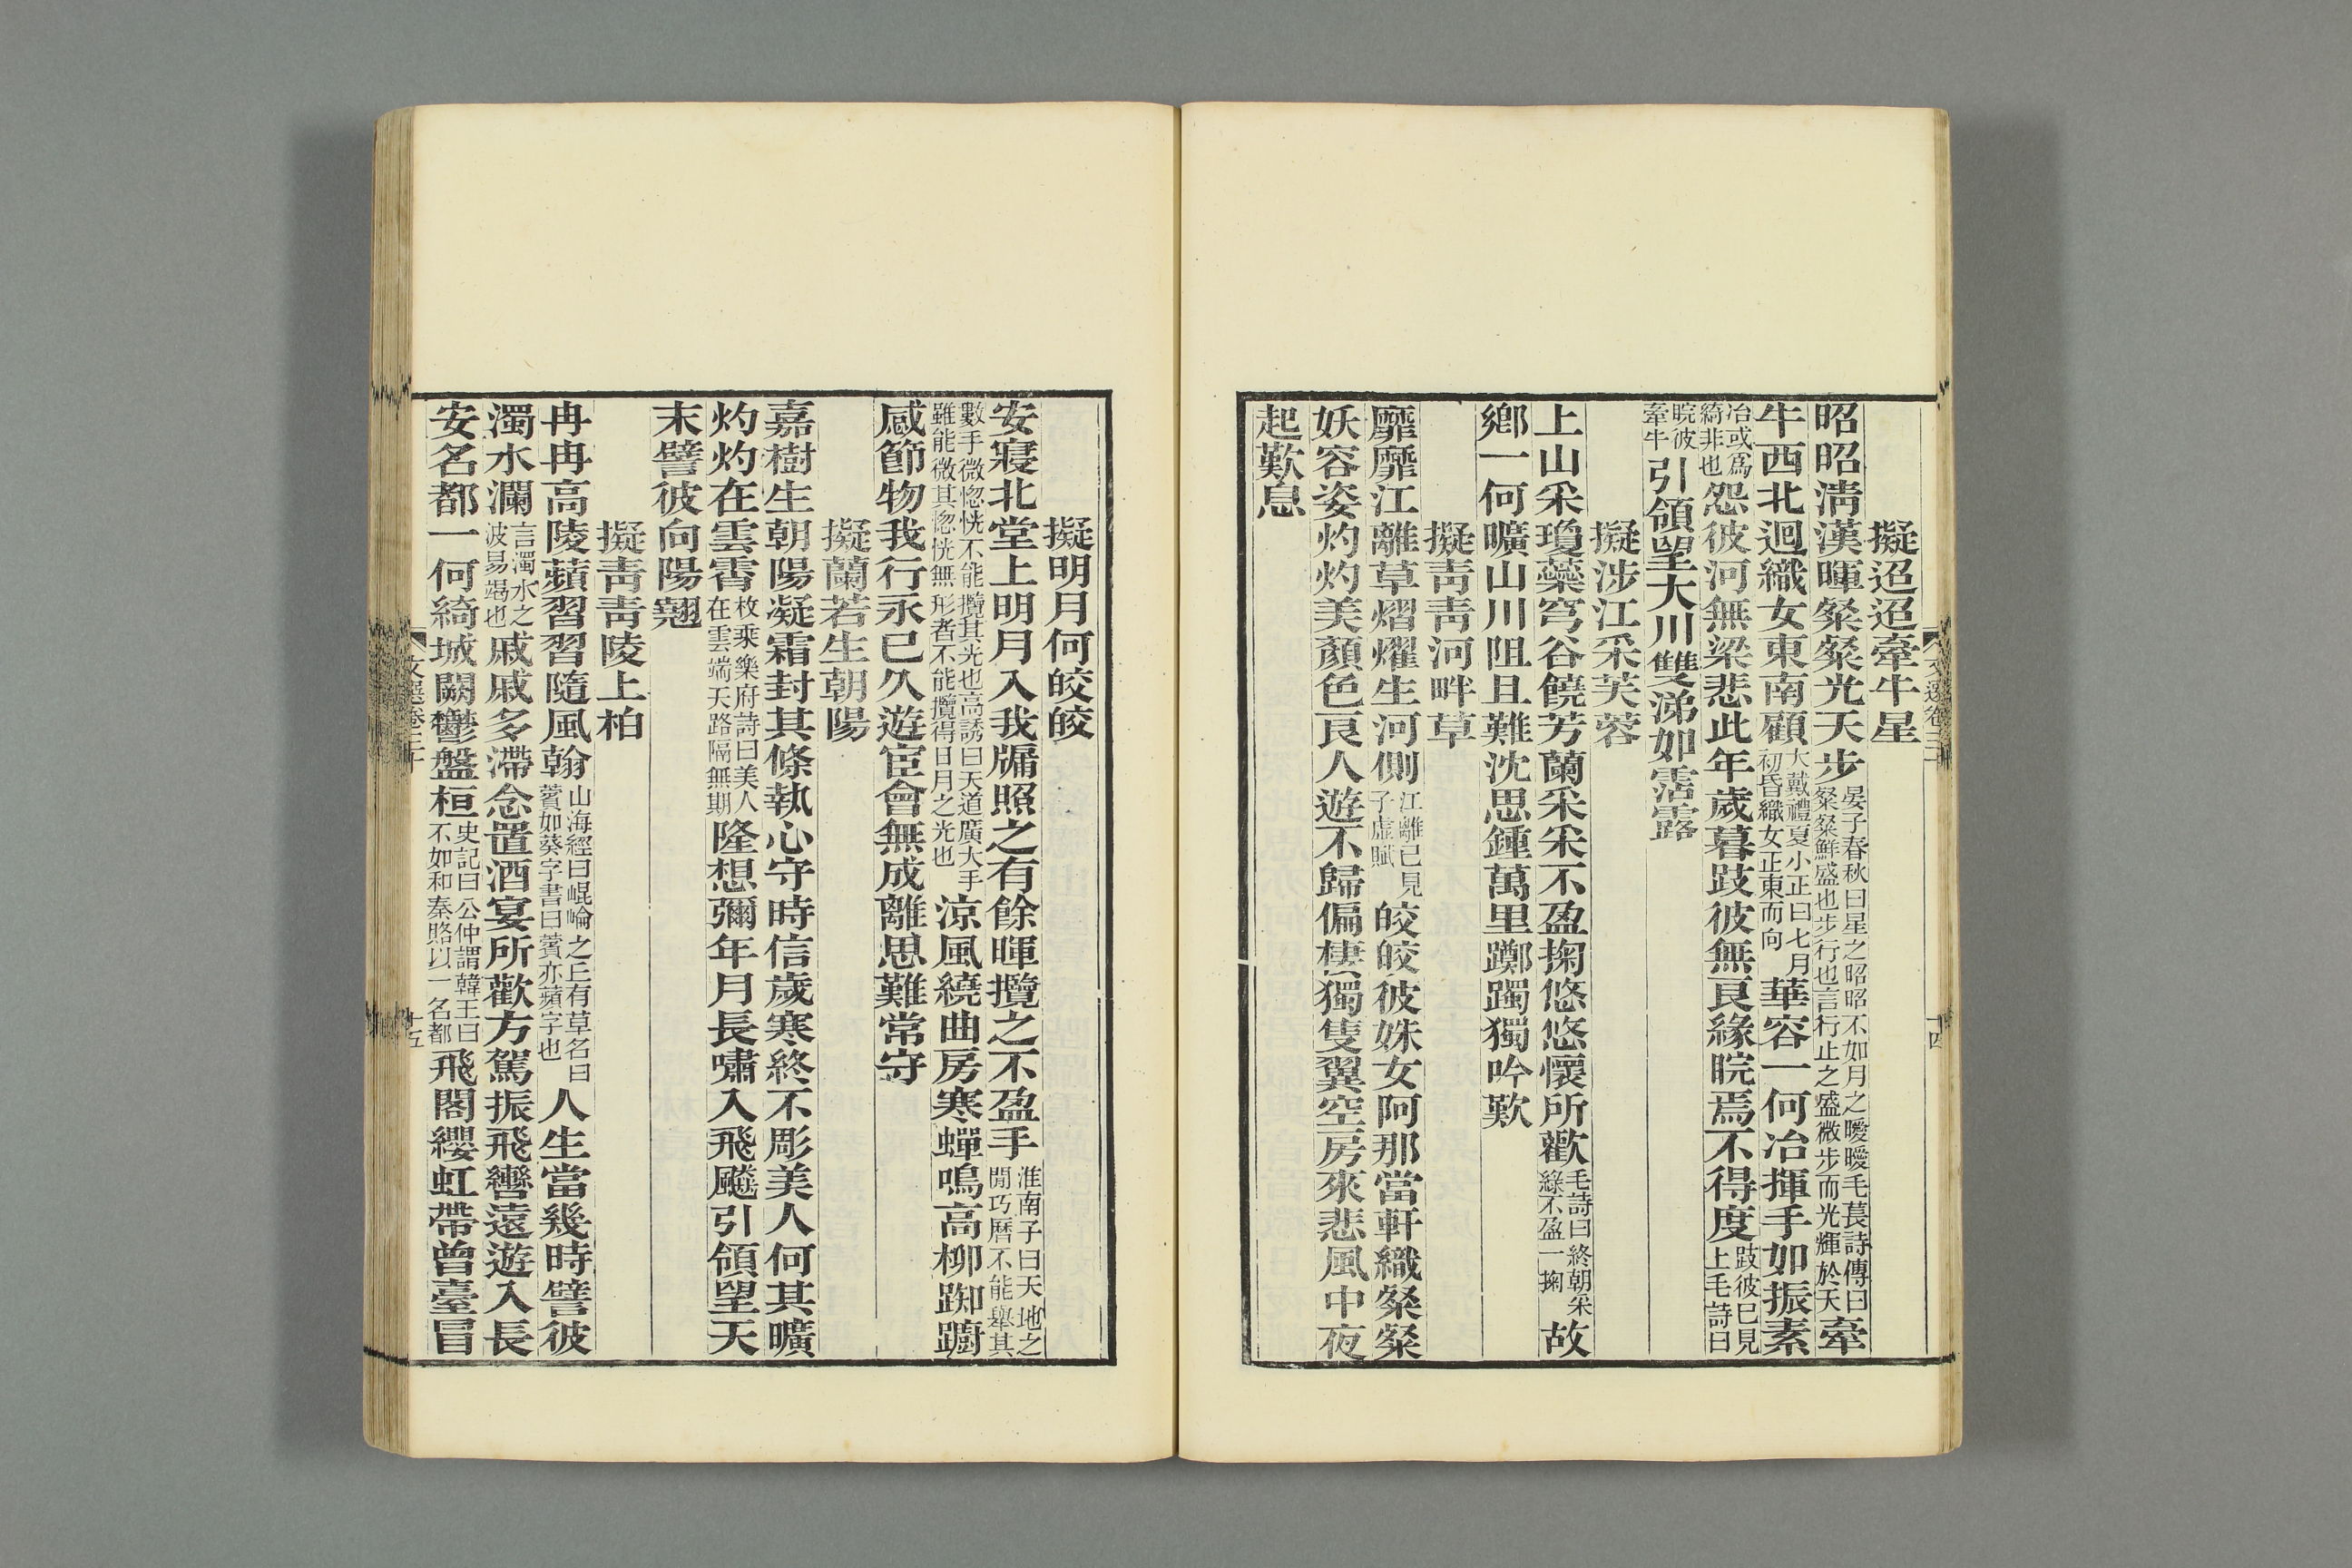 擬迢迢牽牛星
昭昭淸漢暉粲粲光天步晏子春秋曰星之昭昭不如月之曖曖毛萇詩傳曰粲粲鮮盛也步行也言行止之盛微步而光輝於天牽
牛西北迴織女東南顧大戴禮夏小正曰七月初昏織女正東而向華容一何冶揮手如振素
冶或爲綺非也怨彼河無梁悲此年歲暮跂彼無良緣睆焉不得度跂彼已見上毛詩曰
睆彼牽牛引領望大川雙涕如霑露
擬涉江采芙蓉
上山采瓊蘂穹谷饒芳蘭采采不盈掬悠悠懷所歡毛詩曰終朝采綠不盈一掬故
鄉一何曠山川阻且難沈思鍾萬里躑躅獨吟歎
擬靑靑河畔草
靡靡江離草熠燿生河側江離已見子虛賦皎皎彼姝女阿那當軒織粲粲
妖容姿灼灼美顏色良人遊不歸偏棲獨隻翼空房來悲風中夜
起歎息
文選卷三十
十四
擬明月何皎皎
安寢北堂上明月入我牖照之有餘暉攬之不盈手淮南子曰天地之閒巧曆不能舉其
數手微惚恍不能攬其光也高誘曰天道廣大手雖能微其惚恍無形者不能攬得日月之光也涼風繞曲房寒蟬鳴高柳踟躕
感節物我行永已久遊宦會無成離思難常守
擬蘭若生朝陽
嘉樹生朝陽凝霜封其條執心守時信歲寒終不彫美人何其曠
灼灼在雲霄枚乘樂府詩曰美人在雲端天路隔無期隆想彌年月長嘯入飛飇引領望天
末譬彼向陽翹
擬靑靑陵上柏
冉冉高陵蘋習習隨風翰山海經曰崐崘之丘有草名曰薲如葵字書曰薲亦蘋字也人生當幾時譬彼
濁水瀾言濁水之波易竭也戚戚多滯念置酒宴所歡方駕振飛轡遠遊入長
安名都一何綺城闕鬱盤桓史記曰公仲謂韓王曰不如和秦賂以一名都飛閣纓虹帶曾臺冒
文選卷三十
十五